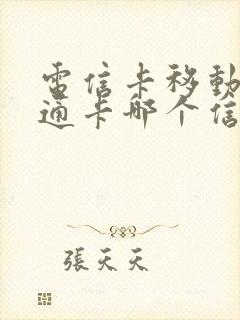 電信卡移動
通卡哪个信
張天天